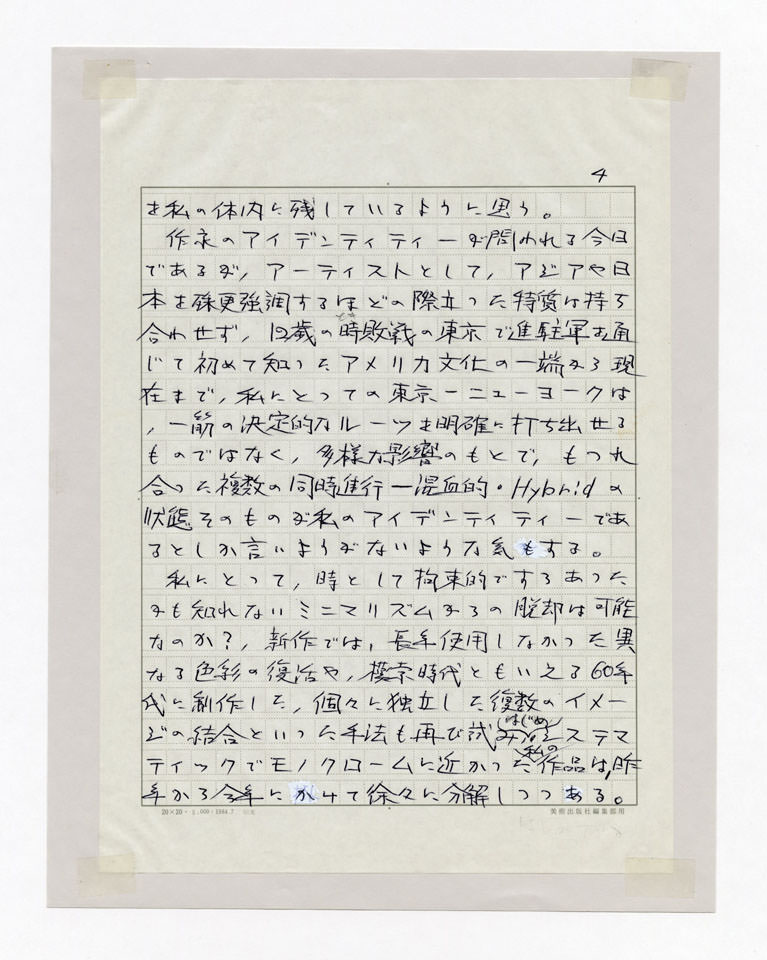 4
を私の体内に残しているように思う。
作家のアイデンティティーが問われる今日
であるが、アーティストとして、アジアや日
本を殊更強調するほどの際立った特質は持ち
合わせず、12歳の時敗戦の東京で進駐軍を通
じて初めて知ったアメリカ文化の一端から現
在まで、私にとっての東京ーニューヨークは
、一筋の決定的なルーツを明確に打ち出せる
ものではなく、多様な影響のもとで、もつれ
合った複数の同時進行ー混血的・Hybridの
状態そのものが私のアイデンティティーであ
るとしか言いようがないような気もする。
私にとって、時として拘束的ですらあった
かも知れないミニマリズムからの脱却は可能
なのか?、新作では、長年使用しなかった異
なる色彩の復活や、模索時代ともいえる60年
代に制作した、個々に独立した複数のイメー
ジの結合といった手法も再び試み(はじめ)システマ
ティックでモノクロームに近かった私の作品は、昨
年から今年にかけて徐々に分解しつつある。
20×20 1984.7 美術出版社編集部用